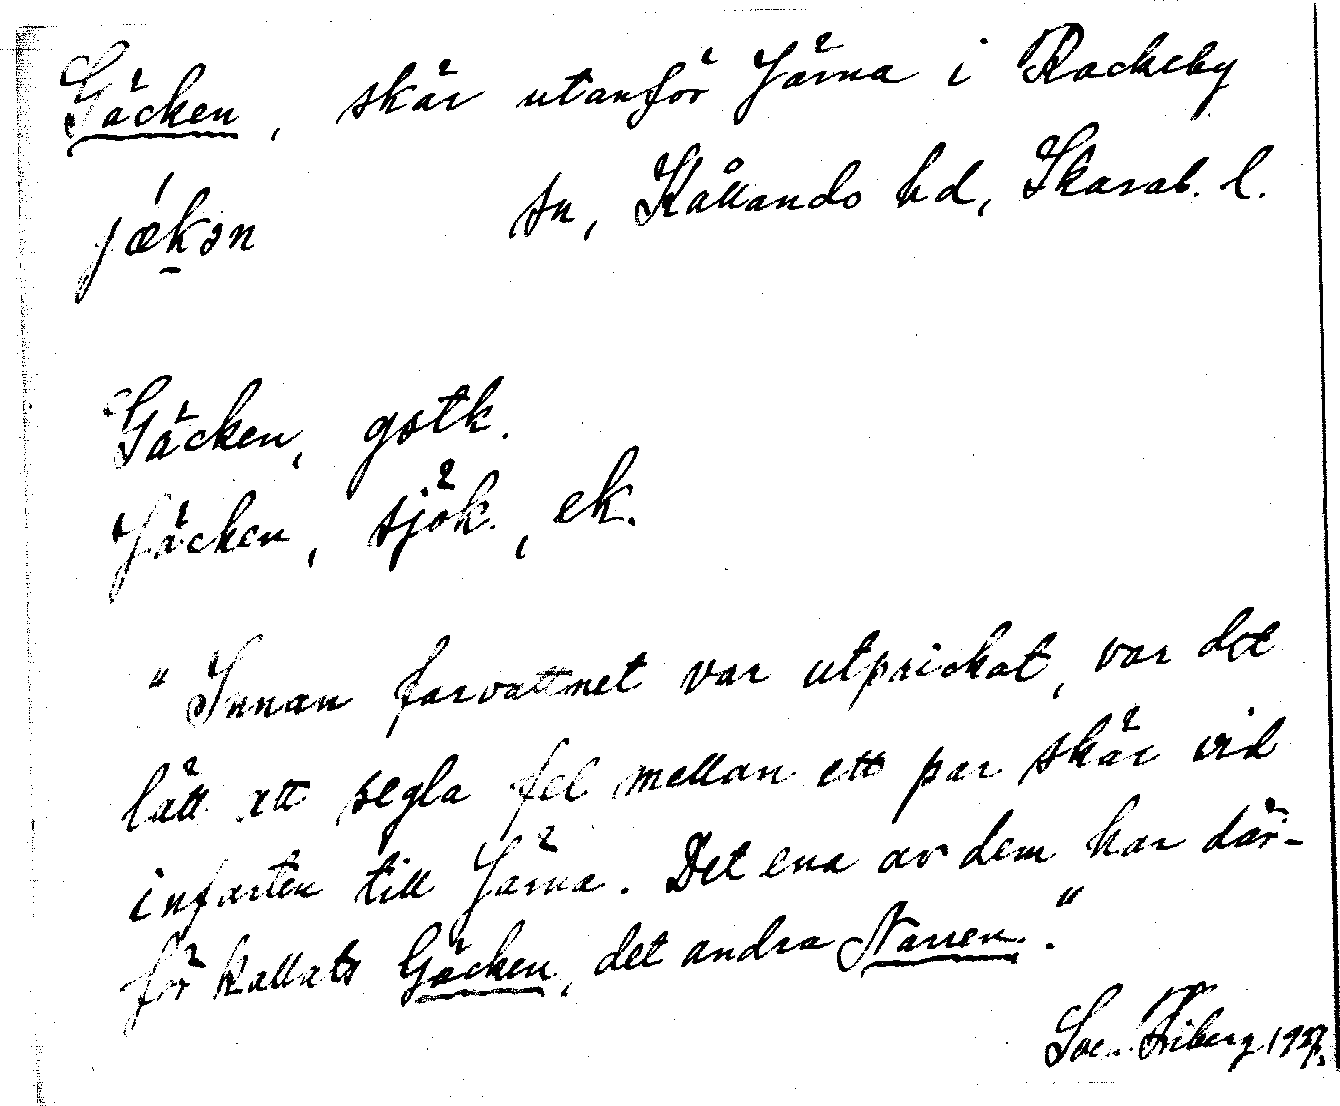 Gäcken, skär utanför Järna i Rackeby
jækən sn, Kållands hd, Skarab. l.
Gäcken, gstk.
Jäcken, sjök., ek.
"Innan farvattnet var utprickat, var det
lätt att segla fel mellan ett par skär vid
infarten till Järna. Det ena av dem har där-
för kallats Gäcken, det andra Narren."
Sven Friberg